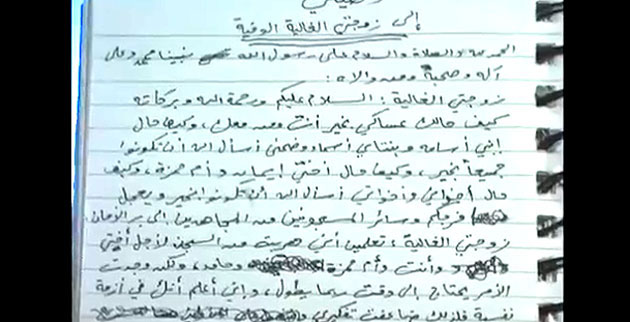 إلى زوجتي الغالية الوفية
الحمد لله والصلاة والسلام على رسول الله نبينا محمد وعلى
آله وصحبه ومن والاه :
زوجتي الغالية : السلام عليكم ورحمة الله وبركاته
كيف حالك عساكي بخير أنت ومن معك ، وكيف حال
إبني أسامة وبنتاي أسماء وضحى أسأل الله أن تكونوا
جميعاً بخير ، وكيف حال أختي إيمان وأم حمزة ، وكيف
حال أخواني وأخواتي أسأل الله أن تكونوا بخير ويعجل
فرجكم وسائر المسجونين من المجاهدين إلى بر الأمان
زوجتي الغالية ، تعلمين أني هربت من السجن لأجل أختي
وأنت وأم حمزة وحامد ، ولكن وجدت
الأمر يحتاج إلى وقت ربما يطول ، وإني أعلم أنك في أزمة
نفسية فلذلك ضاعفت تفكيري